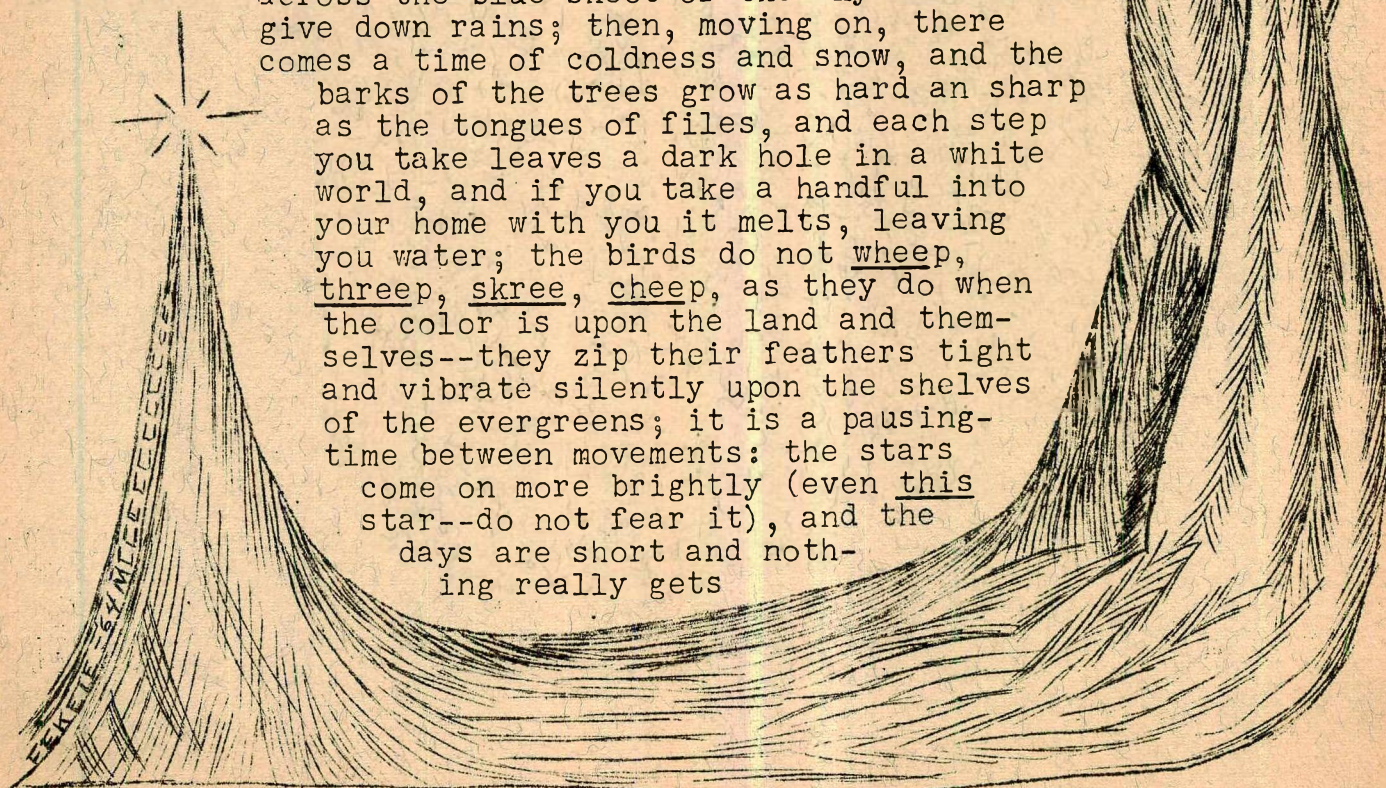 give down rains; then, moving on, there
comes a time of coldness and snow, and the
barks of the trees grow as hard an sharp
as the tongues of files, and each step
you take leaves a dark hole in a white
world, and if you take a handful into
your home with you it melts, leaving
you water; the birds do not wheep,
threep, skree, cheep, as they do when
the color is upon the land and them-
selves--they zip their feathers tight
and vibrate silently upon the shelves
of the evergreens; it is a pausing-
time between movements: the stars
come on more brightly (even this
star--do not fear it), and the
days are short and noth-
ing really gets
FEKETE